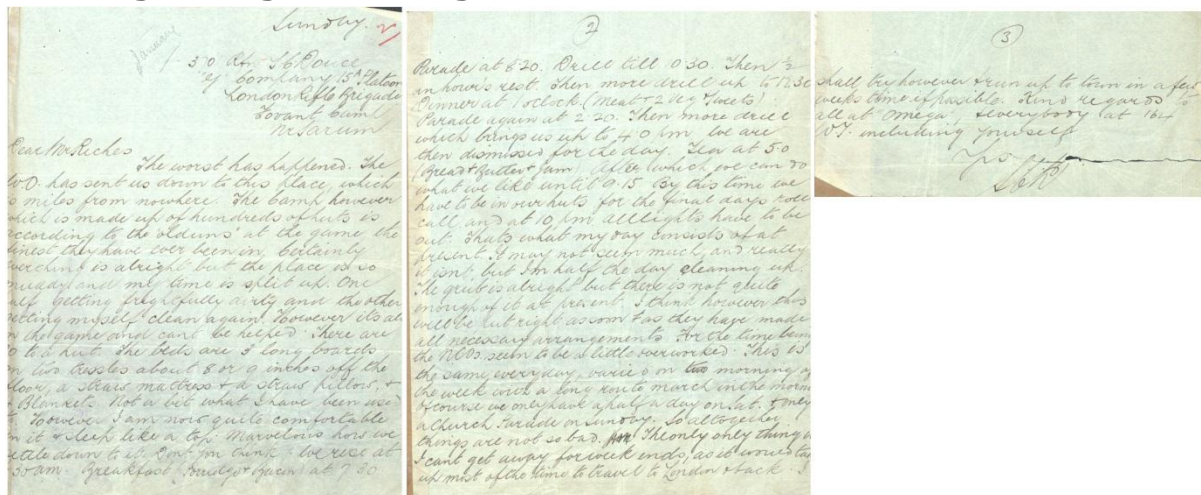 Sunday.
January
"E" Company 15th Platoon
London Rifle Brigade
Fovant Camp
Nr Sarum
Dear Mr Riches
The worst has happened. The
W.O. has sent us down to this place, which
miles from nowhere. The Camp however
which is made up of hundreds of huts is
according to the 'olduns' at the game the
finest they have ever been in. Certainly
everything is alright but the place is so
muddy and my time is split up. One
half getting frightfully dirty and the other
getting myself clean again. However its all
in the game and cant be helped. There are
to a hut. The beds are 3 long boards
on two tressles about 8 or 9 inches off the
floor, a straw mattress & a straw pillow, &
Blankets. Not a bit what I have been used
to. However I am now quite comfortable
in it & sleep like a top. Marvelous how we
settle down to it. Dont you think. We rise at
30 am. Breakfast (Porridge & Bacon) at 7 30
2
Parade at 8 20. Drill till 10 30. Then ½
an hour's rest. Then more drill up to 12.30
Dinner at 1 oclock. (Meat & 2 Veg & Sweets)
Parade again at 2 20. Then more drill
which brings us up to 4 0 pm. We are
then dismissed for the day. Tea at 5 0
(Bread & Butter & Jam). After which, we can do
what we like until 9.15 By this time we
have to be in our huts for the final days roll
call and at 10 pm all lights have to be
out. Thats what my day consists of at
present. It may not seem much, and really
it isnt, but I'm half the day cleaning up.
The grub is alright but there is not quite
enough of it at present. I think however this
will be put right as soon as they have made
all necessary arrangements. For the time being
the NCOs. seem to be a little overworked. This is
the same everyday, varied on two morning of
the week with a long route march in the morning
Of course we only have a half a day on Sat. & only
a Church Parade on Sunday. So altogether
things are not so bad. The only only thing is
I cant get away for week ends, as it would take
up most of the time to travel to London & back. I
3
shall try however & run up to town in a few
weeks time if possible. Kind regards to
all at 'Omega', & everybody at 164
including yourself
Yrs